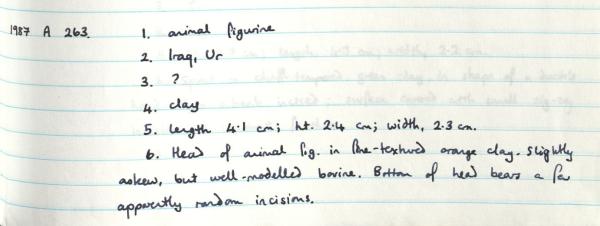 1987 A 263. 1. animal figurine
2. Iraq, Ur
3. ?
4. clay
5. length 4.1 cm; ht. 2.4 cm; width, 2.3 cm.
6. Head of animal fig. in fine-textured orange clay. Slightly
askew, but well-modelled bovine. Bottom of head bears a few
apparently random incisions.